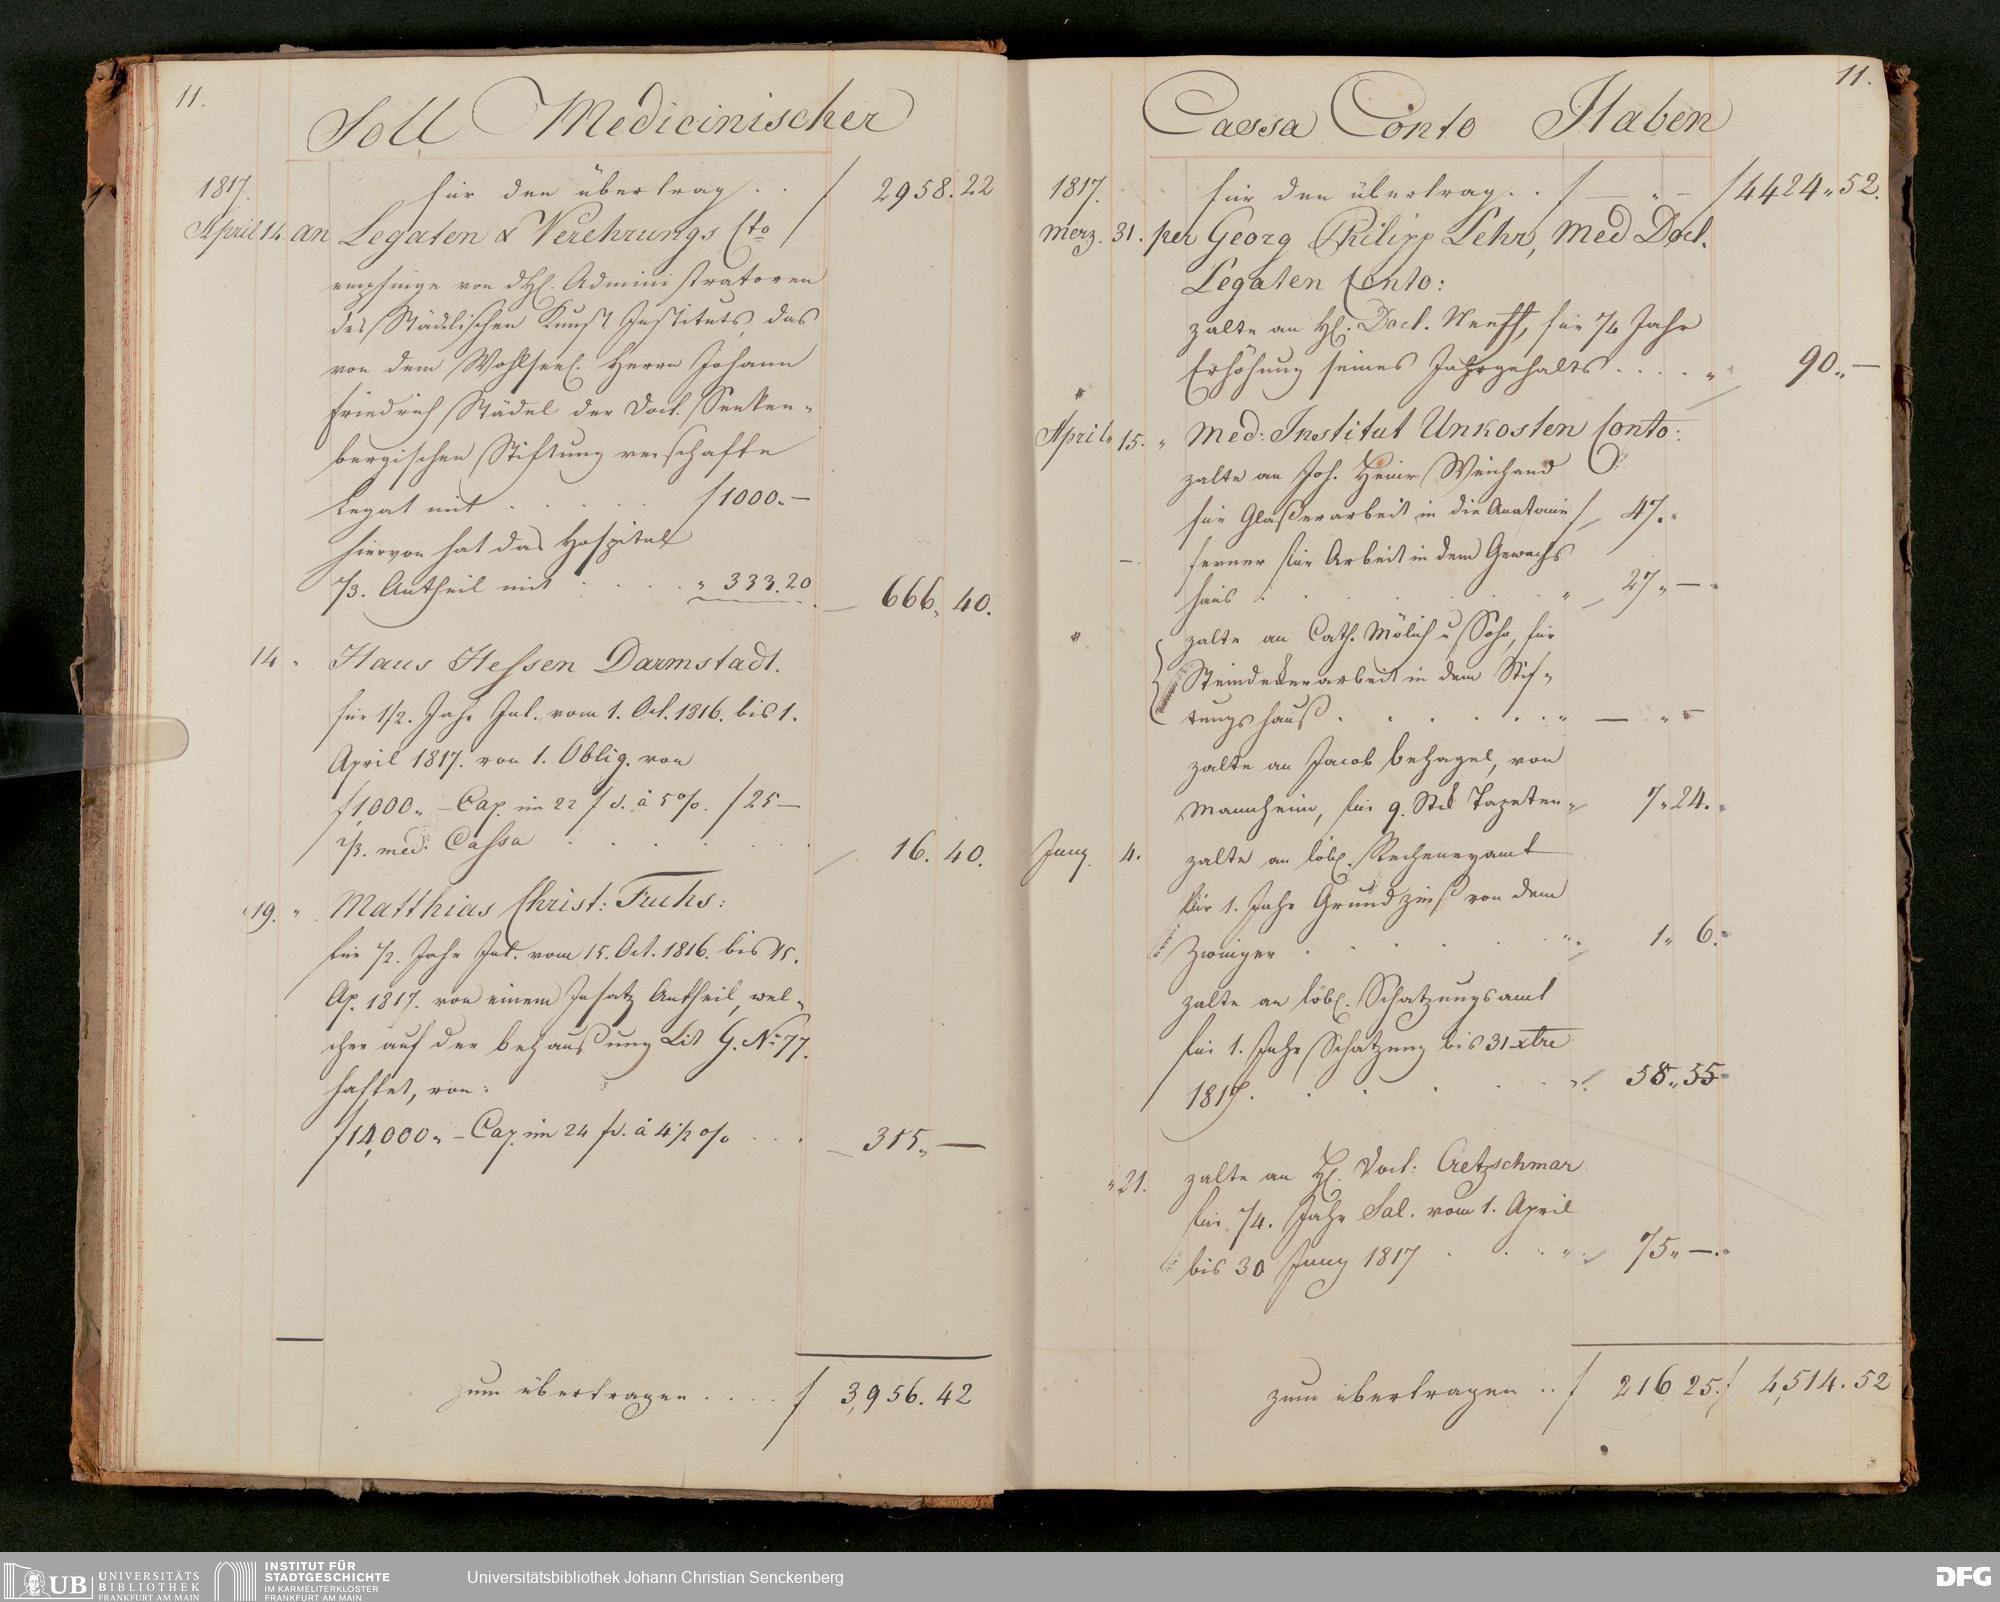 11.
Soll Medicinischer
1817. für den übertrag . . f 2958.22
April 14. an Legaten & Verehrungs Cto
empfinge von dH. Administratoren
des Städelischen Kunst Instituts, das
von dem Wohlseel. Herrn Johann
Friedrich Städel der Doct. Senken-
bergischen Stiftung verschafte
Legat mit . . . . . f 1000.—
hiervon hat das Hospital
1/3. Antheil mit . . . . " 333.20
666. 40.
14 " Haus Hessen Darmstadt.
für 1/2. Jahr Int. vom 1. Oct. 1816. bis 1.
April 1817. von 1. Oblig. von
f 1,000„ — Cap. im 22 f d. à 5 %. f 25—
2/3. med. Cassa . . . . . 16. 40.
" 19. " Matthias Christ: Fuchs:
für 1/2. Jahr Int. vom 15. Oct. 1816. bis 15.
Ap. 1817. von einem Insatz Antheil, wel-
cher auf der behaußung Lit G. No 77.
haftet, von:
f 14,000„ — Cap. im 24 f d. à 4 1/2 % . . . 315„ —
zum übertragen . . . . f 3,956. 42
11.
Cassa Conto Haben
1817. für den übertrag . . f — " — f 4424„ 52.
Merz. 31. per Georg Philipp Lehr, Med Doct.
Legaten Conto:
zalte an H. Doct. Neeff, für 1/4 Jahr
Erhöhung seines Jahrgehalts . . . . " 90„ —
April " 15. " Med: Institut Unkosten Conto:
zalte an Joh. Heinr Weinhand
für Glaßerarbeit in die Anatomie f 47.
ferner für Arbeit in dem Gewechs
haus . . . . . " 27„ —
zalte an Cath. Mölich u Sohn, für
Steindekerarbeit in dem Stif-
tungshauß . . . . . . . " — " —
zalte an Jacob behagel, von
Mannheim, für 9. Stck Tapeten " 7„ 24.
Juny. 4. zalte an löbl. Recheneyamt
für 1. Jahr Grundzinß von dem
Zwinger . . . . . " 1„ 6.
zalte an löbl. Schatzungsamt
für 1. Jahr Schatzung bis 31 xbre
1817. . . . . . " 58„ 55
" 21. zalte an H. Doct: Cretzschmar
für 1/4. Jahr Sal. vom 1. April
bis 30 Juny 1817 . . . " 75„ —
zum übertragen . . f 216 25. f 4,514. 52
UB UNIVERSITÄTS
BIBLIOTHEK
FRANKFURT AM MAIN
INSTITUT FÜR
STADTGESCHICHTE
IM KARMELITERKLOSTER
FRANKFURT AM MAIN
Universitätsbibliothek Johann Christian Senckenberg
DFG